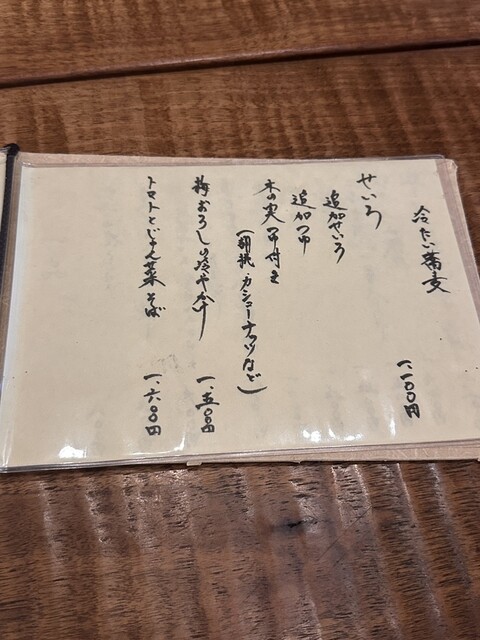 冷たい蕎麦
せいろ 一、一〇〇円
追加せいろ
追加つゆ
木の実つゆ付き
(胡桃・カシューナッツなど)
梅おろしの冷やかけ 一、五〇〇円
トマトとじゅん菜そば 一、六〇〇円